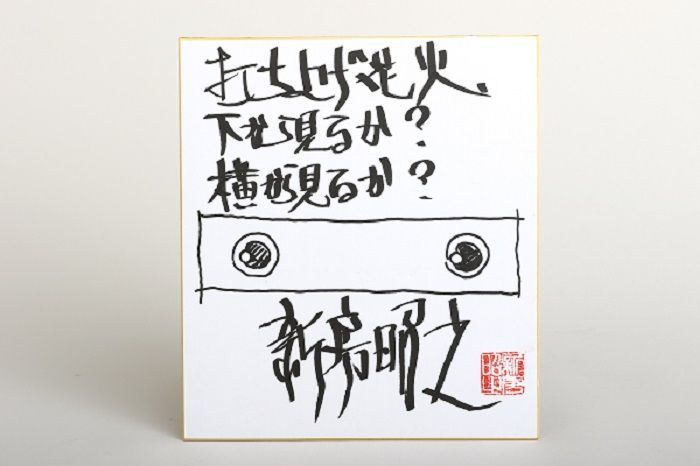 打ち上げ花火、
下から見るか?
横から見るか?
新房昭之
新房
昭之